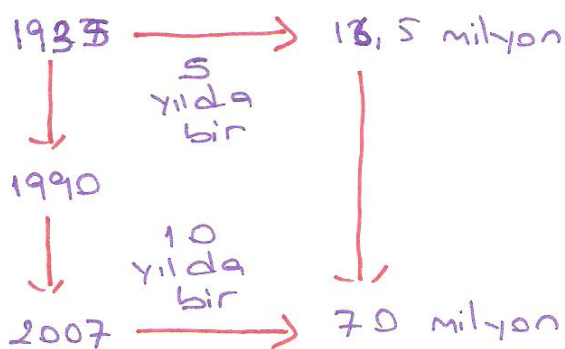 milyon
5
yılda
bir
1990
10
yılda
bir
2007 70 milyon